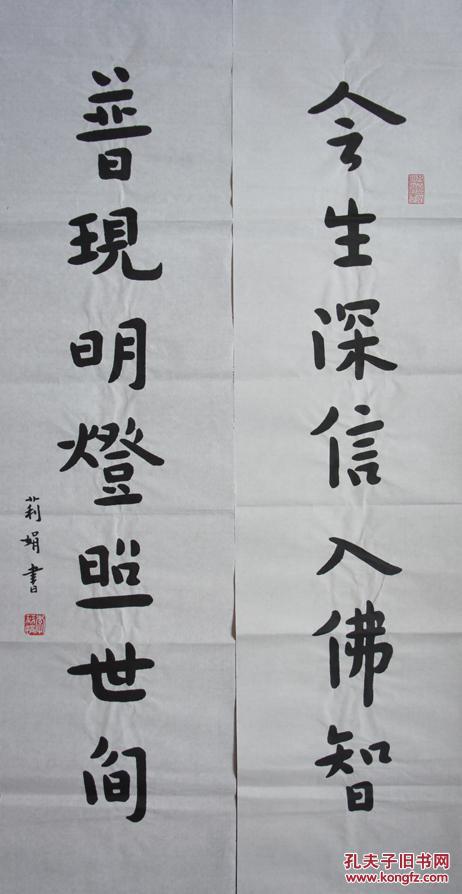 令生深信入佛智
普現明燈照世間
莉娟書
孔夫子旧书网
www.kongfz.com